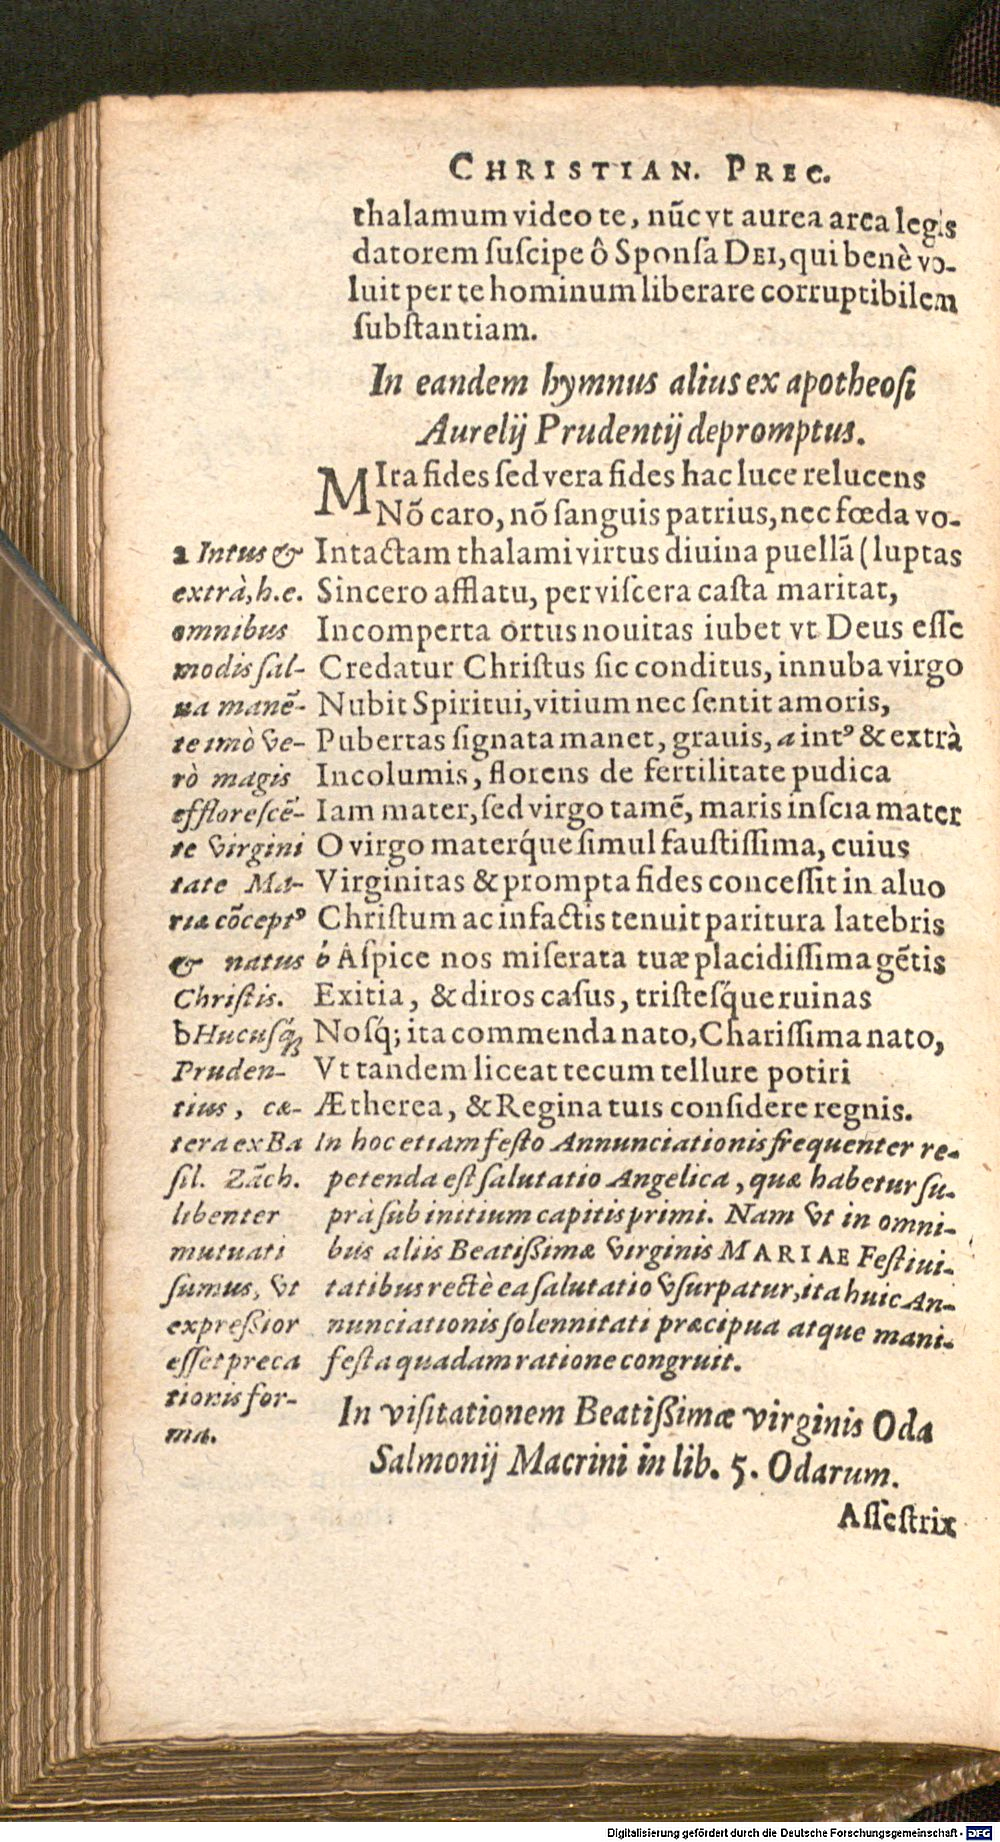 CHRISTIAN. PREC.
thalamum video te, nūc vt aurea area legis
datorem ſuſcipe ô Sponſa DEI, qui benè vo-
luit per te hominum liberare corruptibilem
ſubſtantiam.
In eandem hymnus alius ex apotheoſi
Aurelij Prudentij depromptus.
MIra fides ſed vera fides hac luce relucens
Nō caro, nō ſanguis patrius, nec fœda vo-
Intactam thalami virtus diuina puellā (luptas
Sincero afflatu, per viſcera caſta maritat,
Incomperta ortus nouitas iubet vt Deus eſſe
Credatur Chriſtus ſic conditus, innuba virgo
Nubit Spiritui, vitium nec ſentit amoris,
Pubertas ſignata manet, grauis, a intꝰ & extrà
Incolumis, florens de fertilitate pudica
Iam mater, ſed virgo tamē, maris inſcia mater
O virgo materq́ue ſimul fauſtiſſima, cuius
Virginitas & prompta fides conceſſit in aluo
Chriſtum ac infactis tenuit paritura latebris
b Aſpice nos miſerata tuæ placidiſſima gētis
Exitia, & diros caſus, triſteſq́ue ruinas
Noſq́; ita commenda nato, Chariſſima nato,
Vt tandem liceat tecum tellure potiri
Ætherea, & Regina tuis conſidere regnis.
a Intus &
extrà, h.e.
omnibus
modis ſal-
ua manē-
te imò ve-
rò magis
effloreſcē-
te virgini
tate Ma-
ria cōceptꝰ
& natus
Chriſtis.
b Hucuſq́ꝫ
Pruden-
tius, cæ-
tera ex Ba
ſil. Zāch.
libenter
mutuati
ſumus, vt
expreßior
eſſet preca
tionis for-
ma.
In hoc etiam feſto Annunciationis frequenter re-
petenda eſt ſalutatio Angelica, quæ habetur ſu-
prà ſub initium capitis primi. Nam vt in omni-
bus aliis Beatißimæ virginis MARIAE Feſtiui-
tatibus rectè ea ſalutatio vſurpatur, ita huic An-
nunciationis ſolennitati præcipua atque mani-
feſta quadam ratione congruit.
In viſitationem Beatißimæ virginis Oda
Salmonij Macrini in lib. 5. Odarum.
Aſſeſtrix
Digitalisierung gefördert durch die Deutsche Forschungsgemeinschaft - DFG